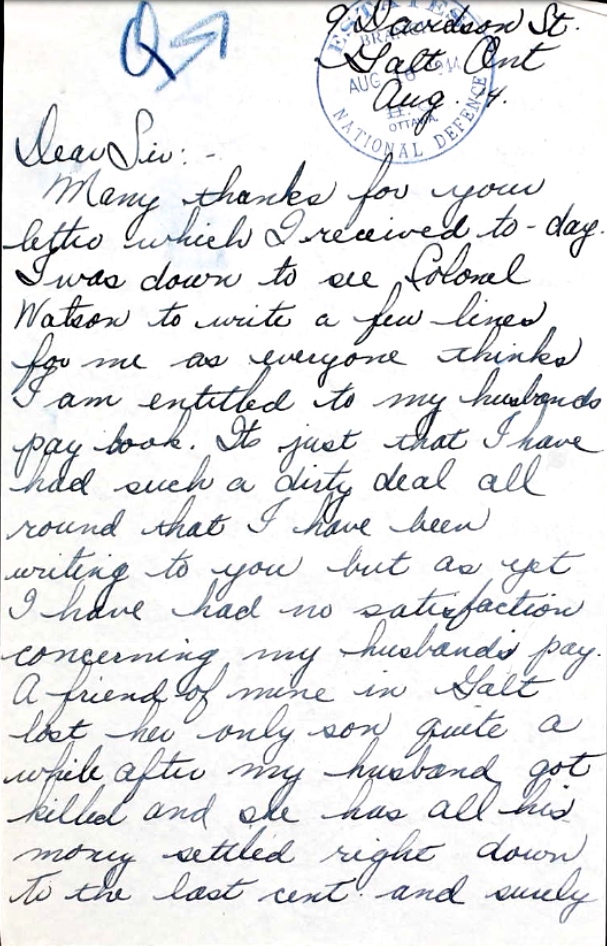 9 Davidson St.
Galt Ont
Aug. 4.
ESTATES
BRANCH
AUG 1944
OTTAWA
NATIONAL DEFENCE
Dear Sir: -
Many thanks for your
letter which I received to-day.
I was down to see Colonel
Watson to write a few lines
for me as everyone thinks
I am entitled to my husbands
pay book. Its just that I have
had such a dirty deal all
round that I have been
writing to you but as yet
I have had no satisfaction
concerning my husband's pay.
A friend of mine in Galt
lost her only son quite a
while after my husband got
killed and she has all his
money settled right down
to the last cent. and surely